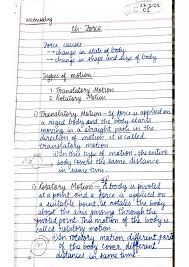 Wednesday
Ch: Force
Force causes
→ change in state of body
→ change in shape and size of body
Types of motion:
1. Translatory Motion
2. Rotatory Motion
1) Translatory Motion - If force is applied on
a rigid body and the body starts
moving in a straight path in the
direction of motion it is called
translatory motion.
In this type of motion, the entire
body covers the same distance
in same time.
2) Rotatory Motion - A body is pivoted
at a point and a force is applied on
a suitable point, it rotates the body
about the axis passing through the
pivoted point. This motion of the body is
called rotatory motion.
In rotatory motion different parts
of the body cover different
distances in same time